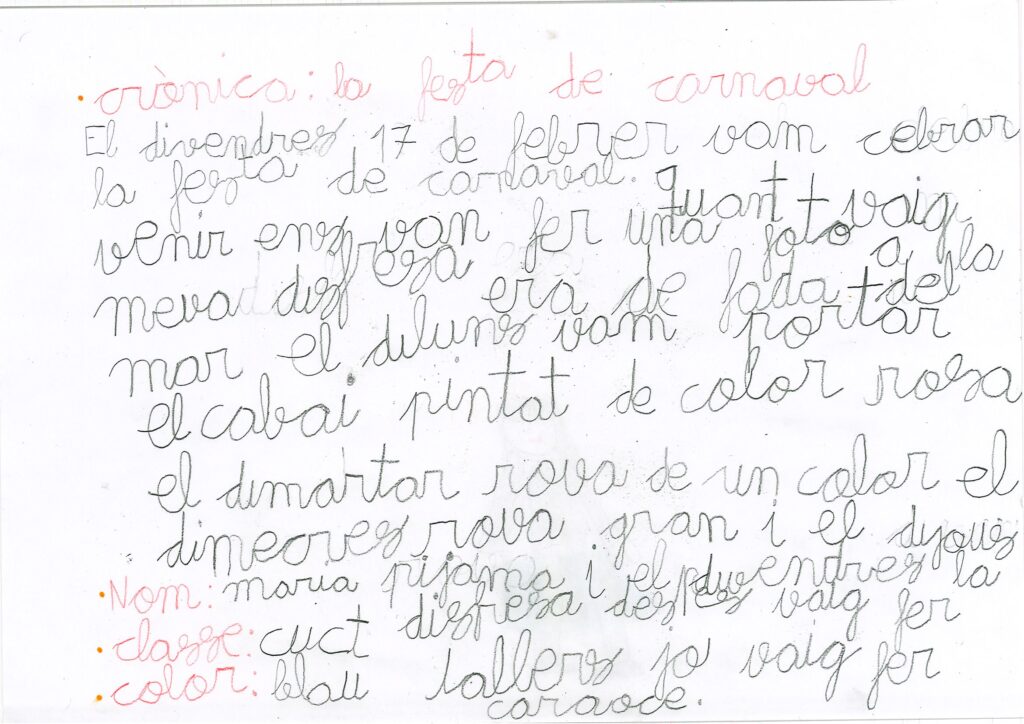 crònica: la festa de carnaval
El divendres 17 de febrer vam cebrar
la festa de carnaval. Quant vaig
venir ens van fer una foto a la
meva disfresa era de fada del
mar el diluns vam portar
el cabai pintat de color rosa
el dimartar rova de un color el
dimecres rova gran i el dijous
pijama i el divendres la
disfresa despres vaig fer
tallers jo vaig fer
caraoce.
Nom: maria
classe: cuct
color: blau